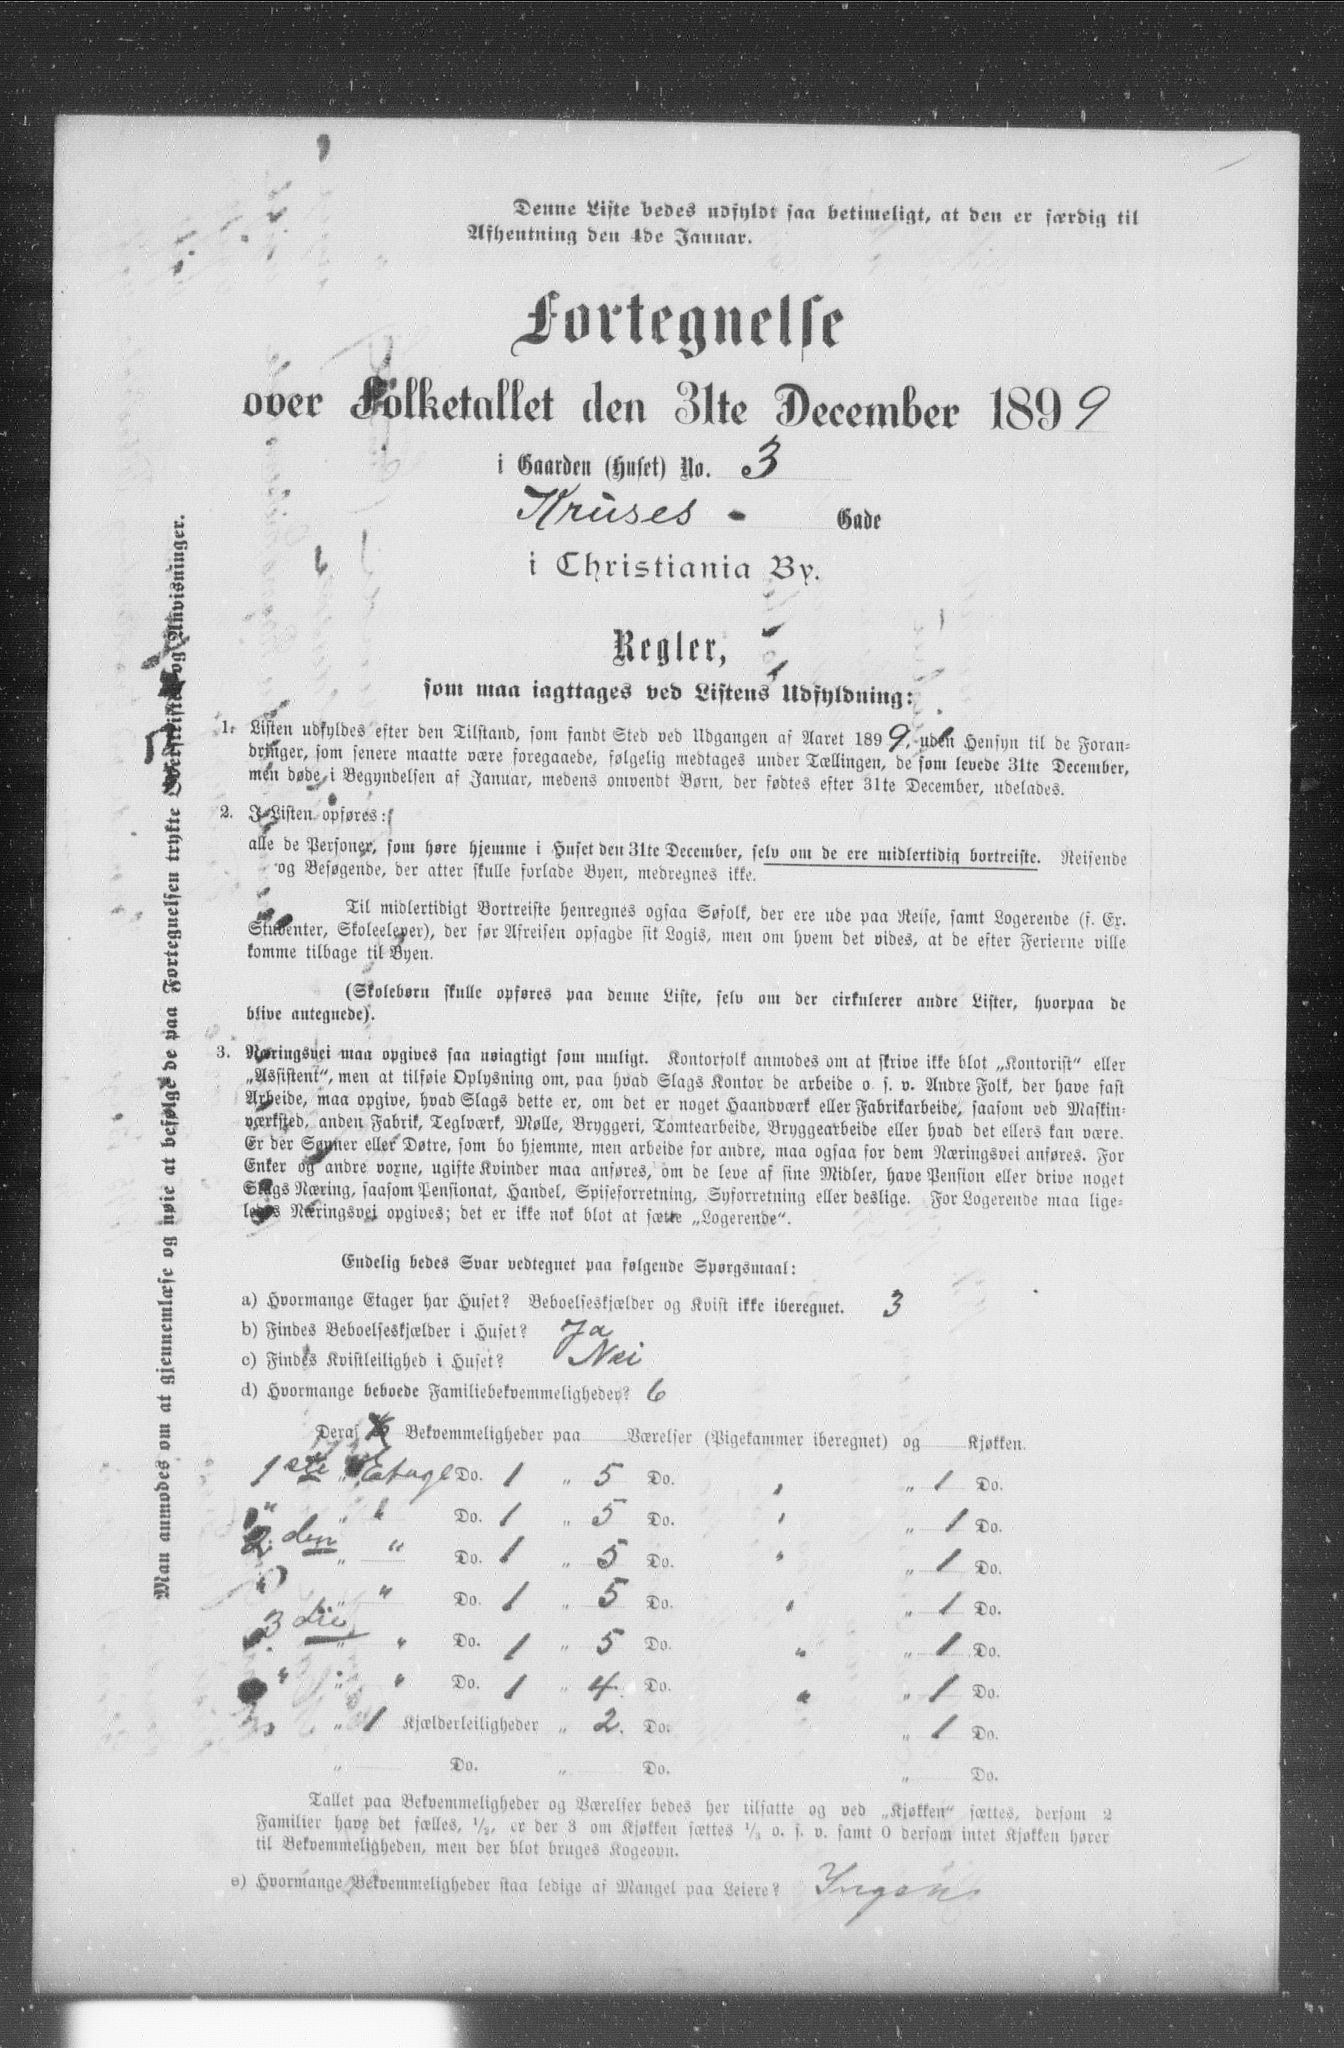 Denne Liste bedes udfyldt saa betimeligt, at den er færdig til
Afhentning den 4de Januar.
Fortegnelse
over Folketallet den 31te December 1899
i Gaarden (Huset) No. 3
Kruses - Gade
i Christiania By.
Regler,
som maa iagttages ved Listens Udfyldning:
1. Listen udfyldes efter den Tilstand, som fandt Sted ved Udgangen af Aaret 1899, uden Hensyn til de Foran-
dringer, som senere maatte være foregaaede, følgelig medtages under Tællingen, de som levede 31te December,
men døde i Begyndelsen af Januar, medens omvendt Børn, der fødtes efter 31te December, udelades.
2. I Listen opføres:
alle de Personer, som høre hjemme i Huset den 31te December, selv om de ere midlertidig bortreiste. Reisende
og Besøgende, der atter skulle forlade Byen, medregnes ikke.
Til midlertidigt Bortreiste henregnes ogsaa Søfolk, der ere ude paa Reise, samt Logerende (f. Ex.
Studenter, Skoleelever), der før Afreisen opsagde sit Logis, men om hvem det vides, at de efter Ferierne ville
komme tilbage til Byen.
(Skolebørn skulle opføres paa denne Liste, selv om der cirkulerer andre Lister, hvorpaa de
blive antegnede).
3. Næringsvei maa opgives saa nøiagtigt som muligt. Kontorfolk anmodes om at skrive ikke blot „Kontorist“ eller
„Assistent“, men at tilføie Oplysning om, paa hvad Slags Kontor de arbeide o. s. v. Andre Folk, der have fast
Arbeide, maa opgive, hvad Slags dette er, om det er noget Haandværk eller Fabrikarbeide, saasom ved Maskin-
værksted, anden Fabrik, Teglværk, Mølle, Bryggeri, Tomtearbeide, Bryggearbeide eller hvad det ellers kan være.
Er der Sønner eller Døtre, som bo hjemme, men arbeide for andre, maa ogsaa for dem Næringsvei anføres. For
Enker og andre voxne, ugifte Kvinder maa anføres, om de leve af sine Midler, have Pension eller drive noget
Slags Næring, saasom Pensionat, Handel, Spiseforretning, Syforretning eller deslige. For Logerende maa lige-
ledes Næringsvei opgives; det er ikke nok blot at sætte „Logerende“.
Endelig bedes Svar vedtegnet paa følgende Spørgsmaal:
a) Hvormange Etager har Huset? Beboelseskjælder og Kvist ikke iberegnet. 3
b) Findes Beboelseskjælder i Huset? Ja
c) Findes Kvistleilighed i Huset? Nei
d) Hvormange beboede Familiebekvemmeligheder? 6
Deraf Bekvemmeligheder paa Værelser (Pigekammer iberegnet) og Kjøkken.
1ste „ Etage Do. 1 „ 5 Do. „ 1 Do.
„ „ Do. 1 „ 5 Do. „ 1 Do.
2den „ " Do. 1 „ 5 Do. „ 1 Do.
" „ " Do. 1 „ 5 Do. „ 1 Do.
3die „ " Do. 1 „ 5 Do. " „ 1 Do.
" „ " Do. 1 „ 4. Do. " „ 1 Do.
„ 1 Kjælderleiligheder „ 2. Do. „ 1 Do.
„ Do. „ Do. „ Do.
Tallet paa Bekvemmeligheder og Værelser bedes her tilsatte og ved „Kjøkken“ sættes, dersom 2
Familier have det fælles, 1/2, er der 3 om Kjøkken sættes 1/3 o. s. v. samt 0 dersom intet Kjøkken hører
til Bekvemmeligheden, men der blot bruges Kogeovn.
e) Hvormange Bekvemmeligheder staa ledige af Mangel paa Leiere? Ingen
Man anmodes om at gjennemlæse og nøie at befølge de paa Fortegnelsen trykte Overskrifter og Anvisninger.